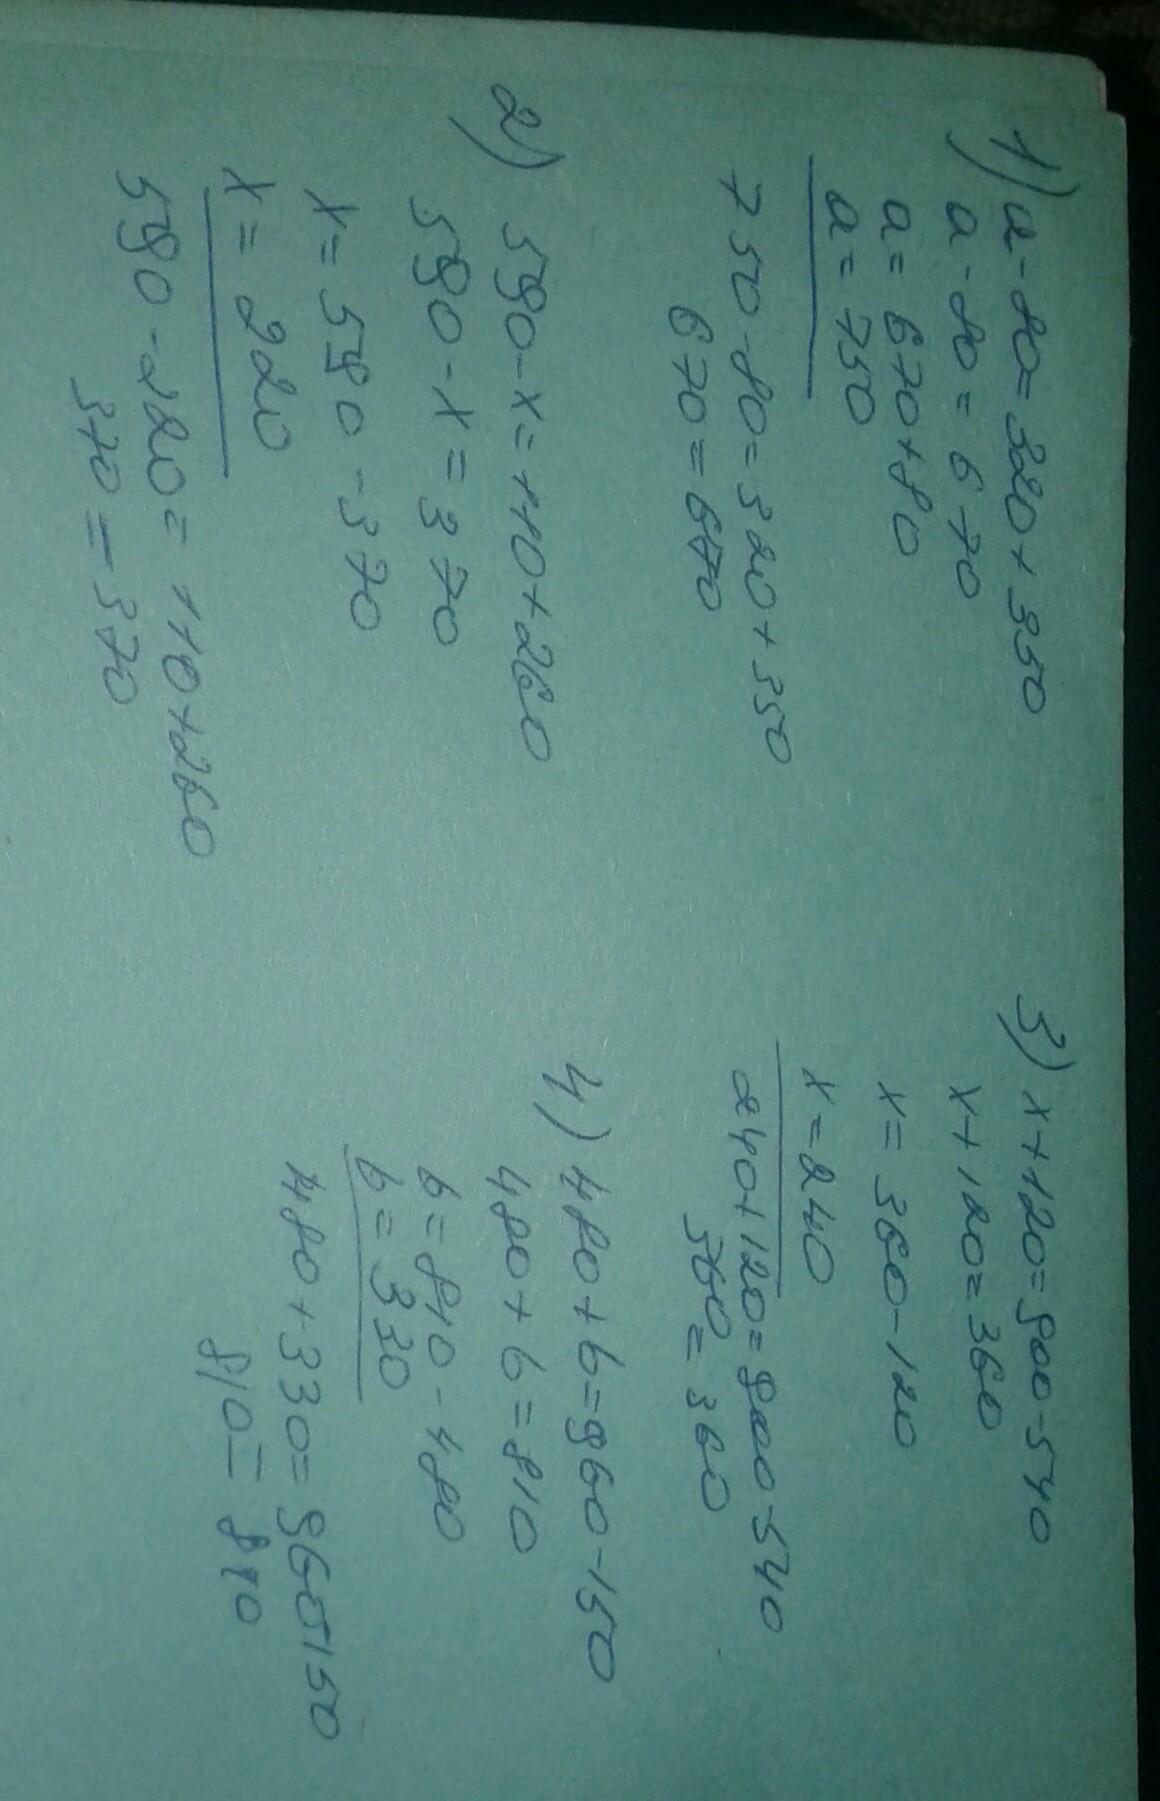 1) a-80=320+350
a-80=670
a=670+80
a=750
750-80=320+350
670=670
2) 590-x=110+260
590-x=370
x=590-370
x=220
590-220=110+260
370=370
3) x+120=900-540
x+120=360
x=360-120
x=240
240+120=900-540
360=360
4) 480+b=960-150
480+b=810
b=810-480
b=330
480+330=960-150
810=810